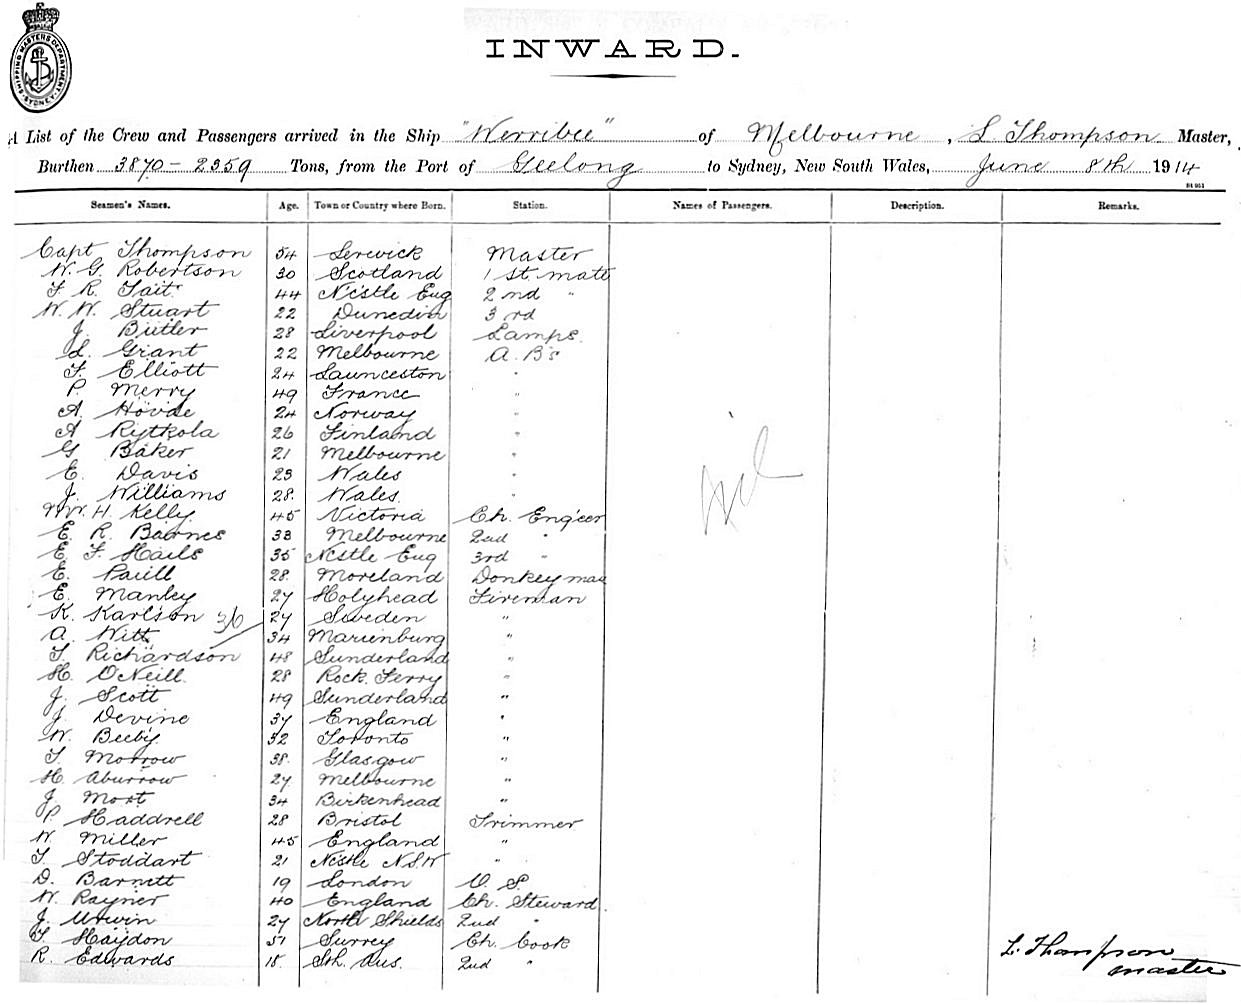 SHIPPING MASTERS DEPARTMENT SYDNEY
INWARD.
A List of the Crew and Passengers arrived in the Ship "Werribee" of Melbourne, L. Thompson Master,
Burthen 3870 - 2359 Tons, from the Port of Geelong to Sydney, New South Wales, June 8th 1914
Seamen's Names. Age. Town or Country where Born. Station. Names of Passengers. Description. Remarks.
Capt Thompson 54 Lerwick Master
W. G. Robertson 30 Scotland 1 st. mate
F. R. Tait 44 Ncstle Eng 2 nd "
W. W. Stuart 22 Dunedin 3 rd
J. Butler 28 Liverpool Lamps.
L. Grant 22 Melbourne A. B's
F. Elliott 24 Launceston "
P. Merry 49 France "
A. Hovde 24 Norway "
A Rytkola 26 Finland "
G Baker 21 Melbourne "
E. Davis 23 Wales "
J. Williams 28. Wales. "
Wm. H. Kelly 45 Victoria Ch. Eng'eer
E. R. Barnes 33 Melbourne 2nd "
E. F. Hails 35 Ncstle Eng 3rd "
E. Paull 28. Moreland Donkeyman
E. Manley 27 Holyhead Fireman
K. Karlson 3/6 27 Sweden "
A. Witt 34 Marienburg "
T. Richardson 48 Sunderland "
H. O'Neill. 28 Rock. Ferry "
J. Scott 49 Sunderland "
J. Devine 37 England "
W. Beeby. 32 Toronto "
T. Morrow 38. Glasgow "
H. Aburrow 27 Melbourne "
J. Mort 34 Birkenhead "
P. Haddrell 28 Bristol Trimmer
W. Miller 45 England "
T. Stoddart 21 Ncstle N.S.W "
D. Barnett 19 London O. S.
W. Rayner 40 England Ch. Steward.
J. Urwin 27 North Shields 2nd "
T. Haydon 51 Surrey Ch. Cook
R. Edwards 18. Sth. Aus. 2nd "
Nil
L. Thompson
master